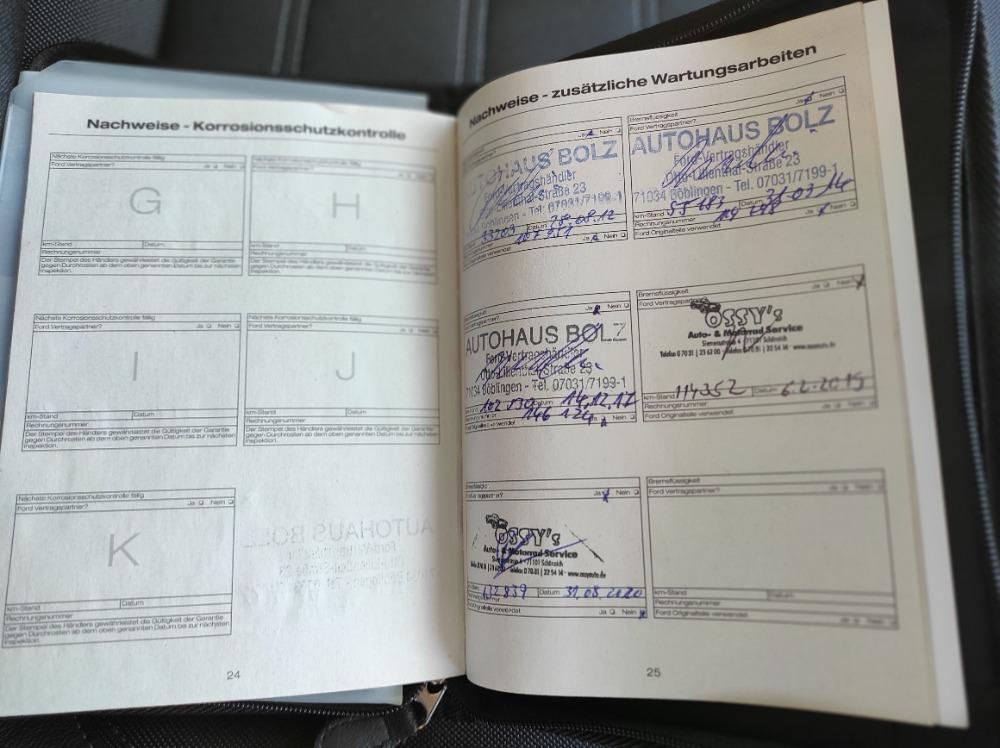 Nachweise - Korrosionsschutzkontrolle
Nächste Korrosionsschutzkontrolle fällig
Ford Vertragspartner? Ja Nein
G
km-Stand Datum
Rechnungsnummer
Der Stempel des Händlers gewährleistet die Gültigkeit der Garantie
gegen Durchrosten ab dem oben genannten Datum bis zur nächsten
Inspektion.
Nächste Korrosionsschutzkontrolle fällig
Ford Vertragspartner? Ja Nein
H
km-Stand Datum
Rechnungsnummer
Der Stempel des Händlers gewährleistet die Gültigkeit der Garantie
gegen Durchrosten ab dem oben genannten Datum bis zur nächsten
Inspektion.
Nächste Korrosionsschutzkontrolle fällig
Ford Vertragspartner? Ja Nein
I
km-Stand Datum
Rechnungsnummer
Der Stempel des Händlers gewährleistet die Gültigkeit der Garantie
gegen Durchrosten ab dem oben genannten Datum bis zur nächsten
Inspektion.
Nächste Korrosionsschutzkontrolle fällig
Ford Vertragspartner? Ja Nein
J
km-Stand Datum
Rechnungsnummer
Der Stempel des Händlers gewährleistet die Gültigkeit der Garantie
gegen Durchrosten ab dem oben genannten Datum bis zur nächsten
Inspektion.
Nächste Korrosionsschutzkontrolle fällig
Ford Vertragspartner? Ja Nein
K
km-Stand Datum
Rechnungsnummer
Der Stempel des Händlers gewährleistet die Gültigkeit der Garantie
gegen Durchrosten ab dem oben genannten Datum bis zur nächsten
Inspektion.
24
Nachweise - zusätzliche Wartungsarbeiten
Ja Nein
AUTOHAUS BOLZ
Ford-Vertragshändler
Otto-Lilienthal-Straße 23
Böblingen - Tel. 07031/7199-1
Ja Nein
Bremsflüssigkeit
Ford Vertragspartner? Ja Nein
AUTOHAUS BOLZ
Ford-Vertragshändler
Otto-Lilienthal-Straße 23
71034 Böblingen - Tel. 07031/7199-1
km-Stand 55183 Datum 21.03.14
Rechnungsnummer
Ford Originalteile verwendet Ja Nein
Ja Nein
AUTOHAUS BOLZ
Ford-Vertragshändler
Otto-Lilienthal-Straße 23
71034 Böblingen - Tel. 07031/7199-1
102 130 Datum 14.12.17
Ja Nein
Bremsflüssigkeit
Ford Vertragspartner? Ja Nein
OSSY's
Auto- & Motorrad Service
km-Stand 114352 Datum 6.2.2019
Rechnungsnummer
Ford Originalteile verwendet Ja Nein
Ja Nein
OSSY's
Auto- & Motorrad-Service
Datum 31.08.2020
Ja Nein
Bremsflüssigkeit
Ford Vertragspartner? Ja Nein
km-Stand Datum
Rechnungsnummer
Ford Originalteile verwendet Ja Nein
25